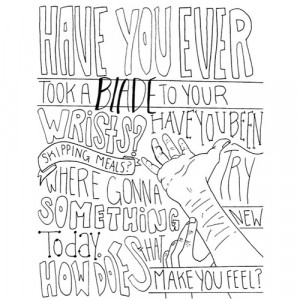 HAVE YOU EVER
TOOK A BLADE TO YOUR
WRISTS? HAVE YOU BEEN
SKIPPING MEALS?
WHERE GONNA TRY
SOMETHING NEW
TODAY.
HOW DOES THAT
MAKE YOU FEEL?